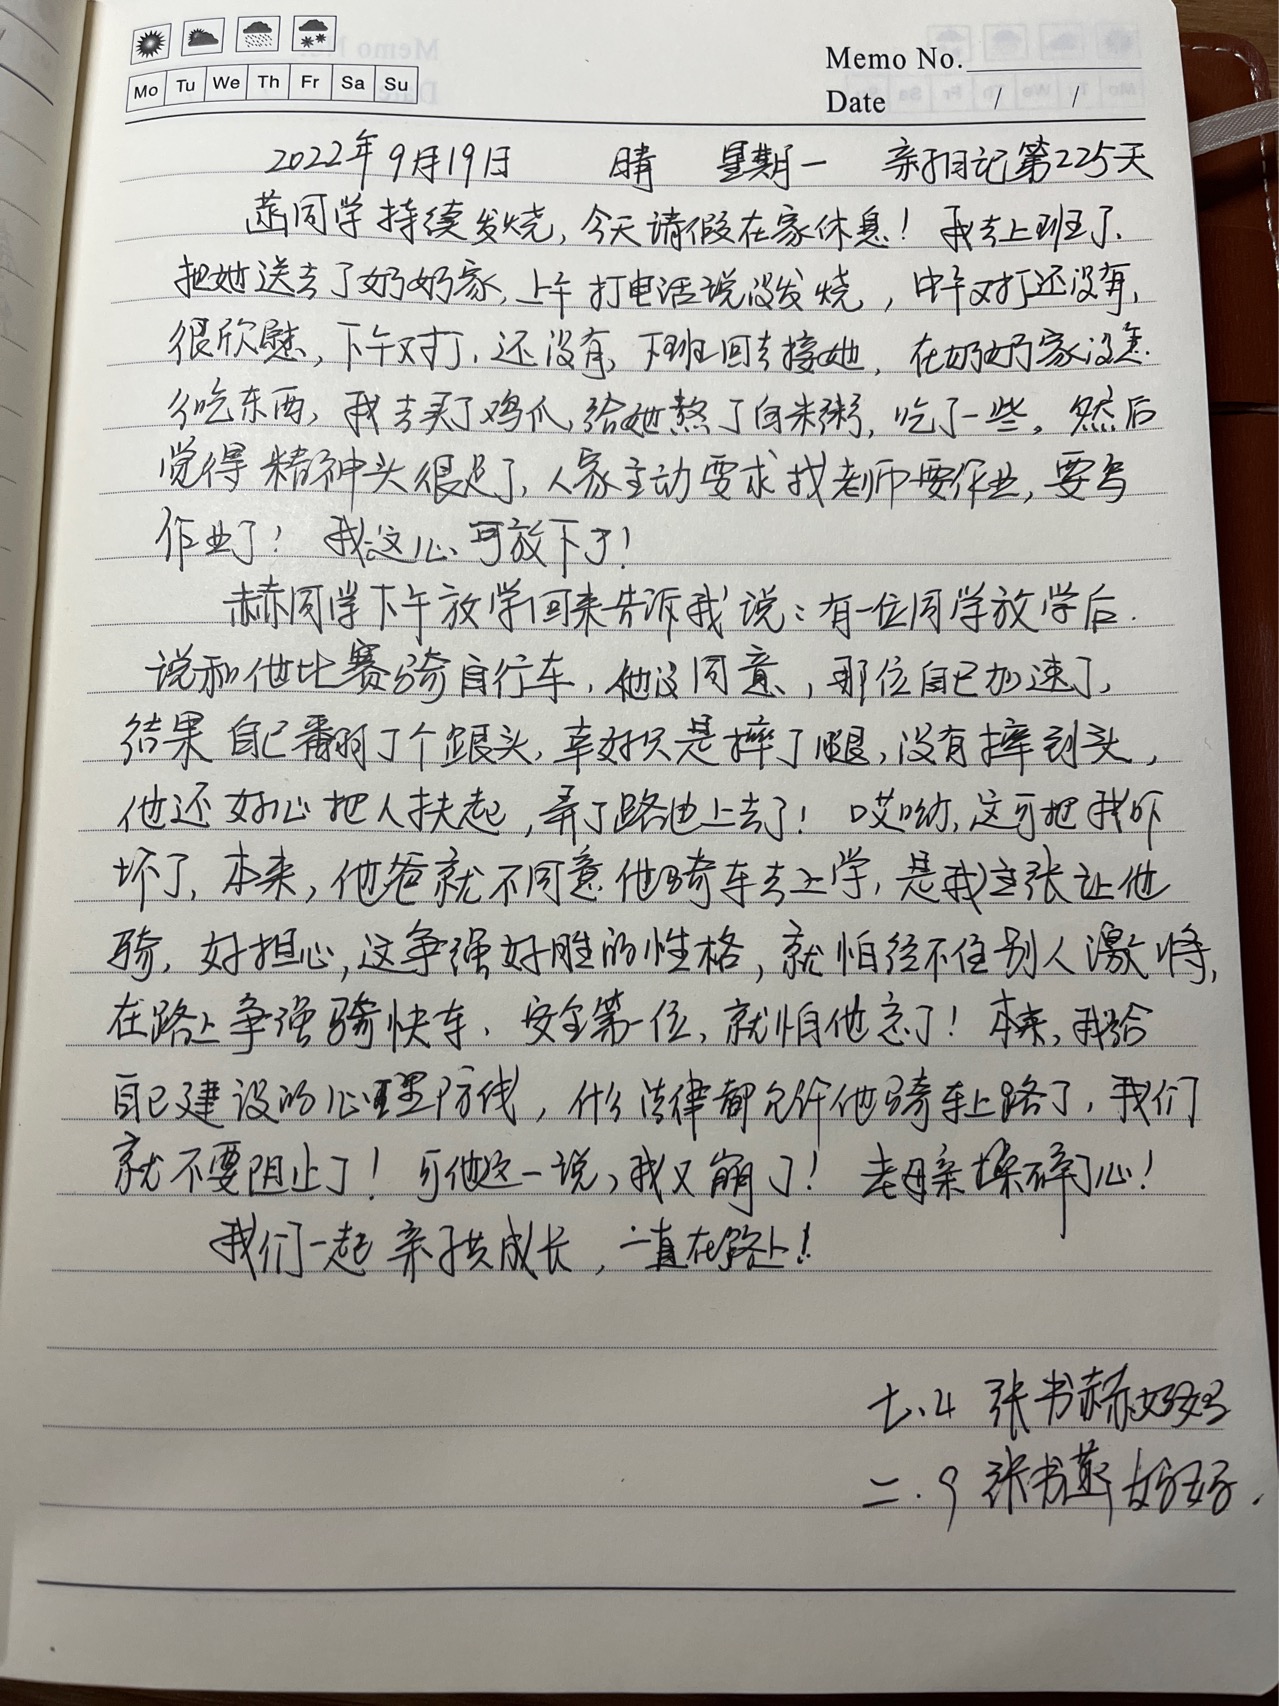 Memo No.
Mo Tu We Th Fr Sa Su
Date / /
2022年9月19日 晴 星期一 亲子日记第225天
菡同学持续发烧,今天请假在家休息!我去上班了,
把她送去了奶奶家,上午打电话说没发烧,中午又打还没有,
很欣慰,下午又打,还没有,下班回去接她,在奶奶家没怎
么吃东西,我去买了鸡爪,给她熬了白米粥,吃了一些。然后
觉得精神头很足了,人家主动要求找老师要作业,要写
作业了!我这心可放下了!
赫同学下午放学回来告诉我说:有一位同学放学后
说和他比赛骑自行车,他没同意,那位自己加速了,
结果自己翻了个跟头,幸好只是摔了腿,没有摔到头,
他还好心把人扶起,弄了路边上去了!哎呦,这可把我吓
坏了,本来,他爸就不同意他骑车去上学,是我主张让他
骑,好担心,这争强好胜的性格,就怕经不住别人激将,
在路上争强骑快车,安全第一位,就怕他忘了!本来,我给
自己建设的心理防线,什么法律都允许他骑车上路了,我们
就不要阻止了!可他这一说,我又崩了!老母亲操碎了心!
我们一起亲子共成长,一直在路上!
七.4 张书赫妈妈
二.9 张书菡妈妈.